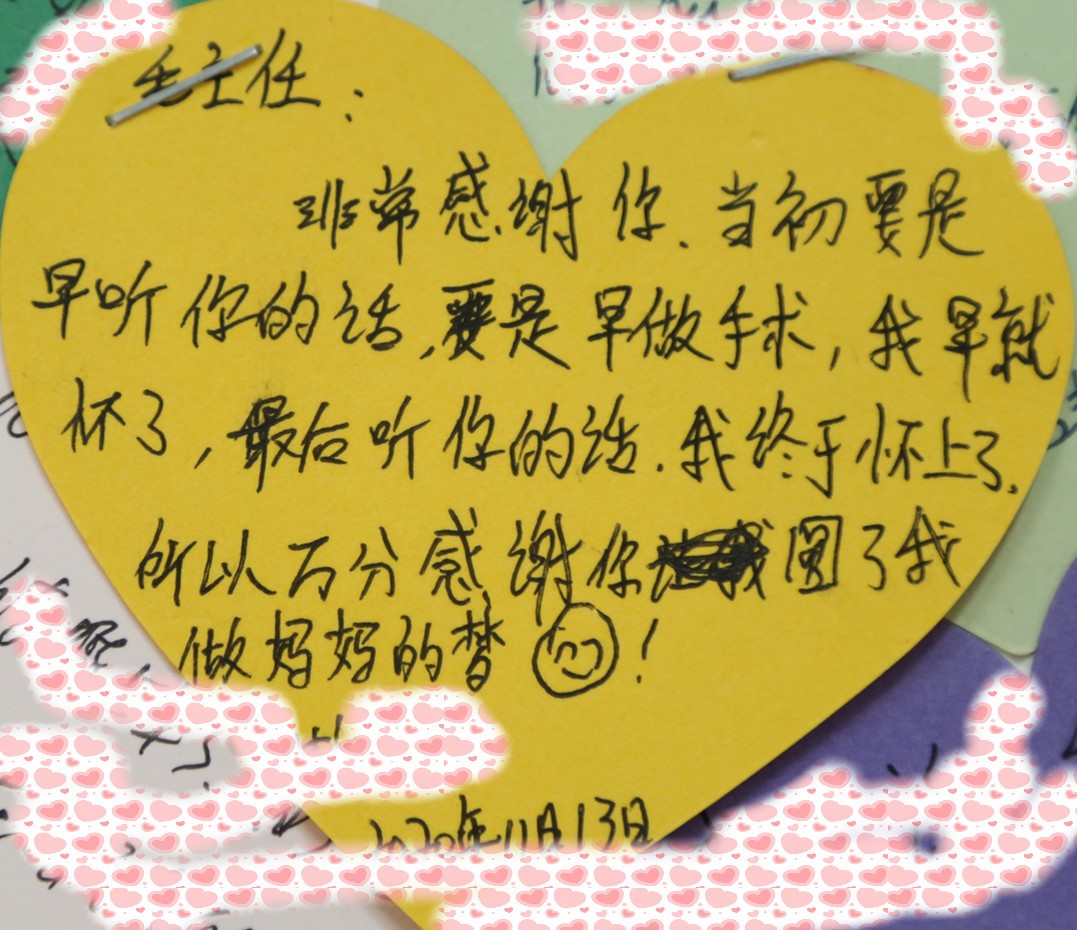 毛主任：
非常感谢你.当初要是
早听你的话,要是早做手术,我早就
怀了,最后听你的话.我终于怀上了.
所以万分感谢你圆了我
做妈妈的梦!
2020年11月13日